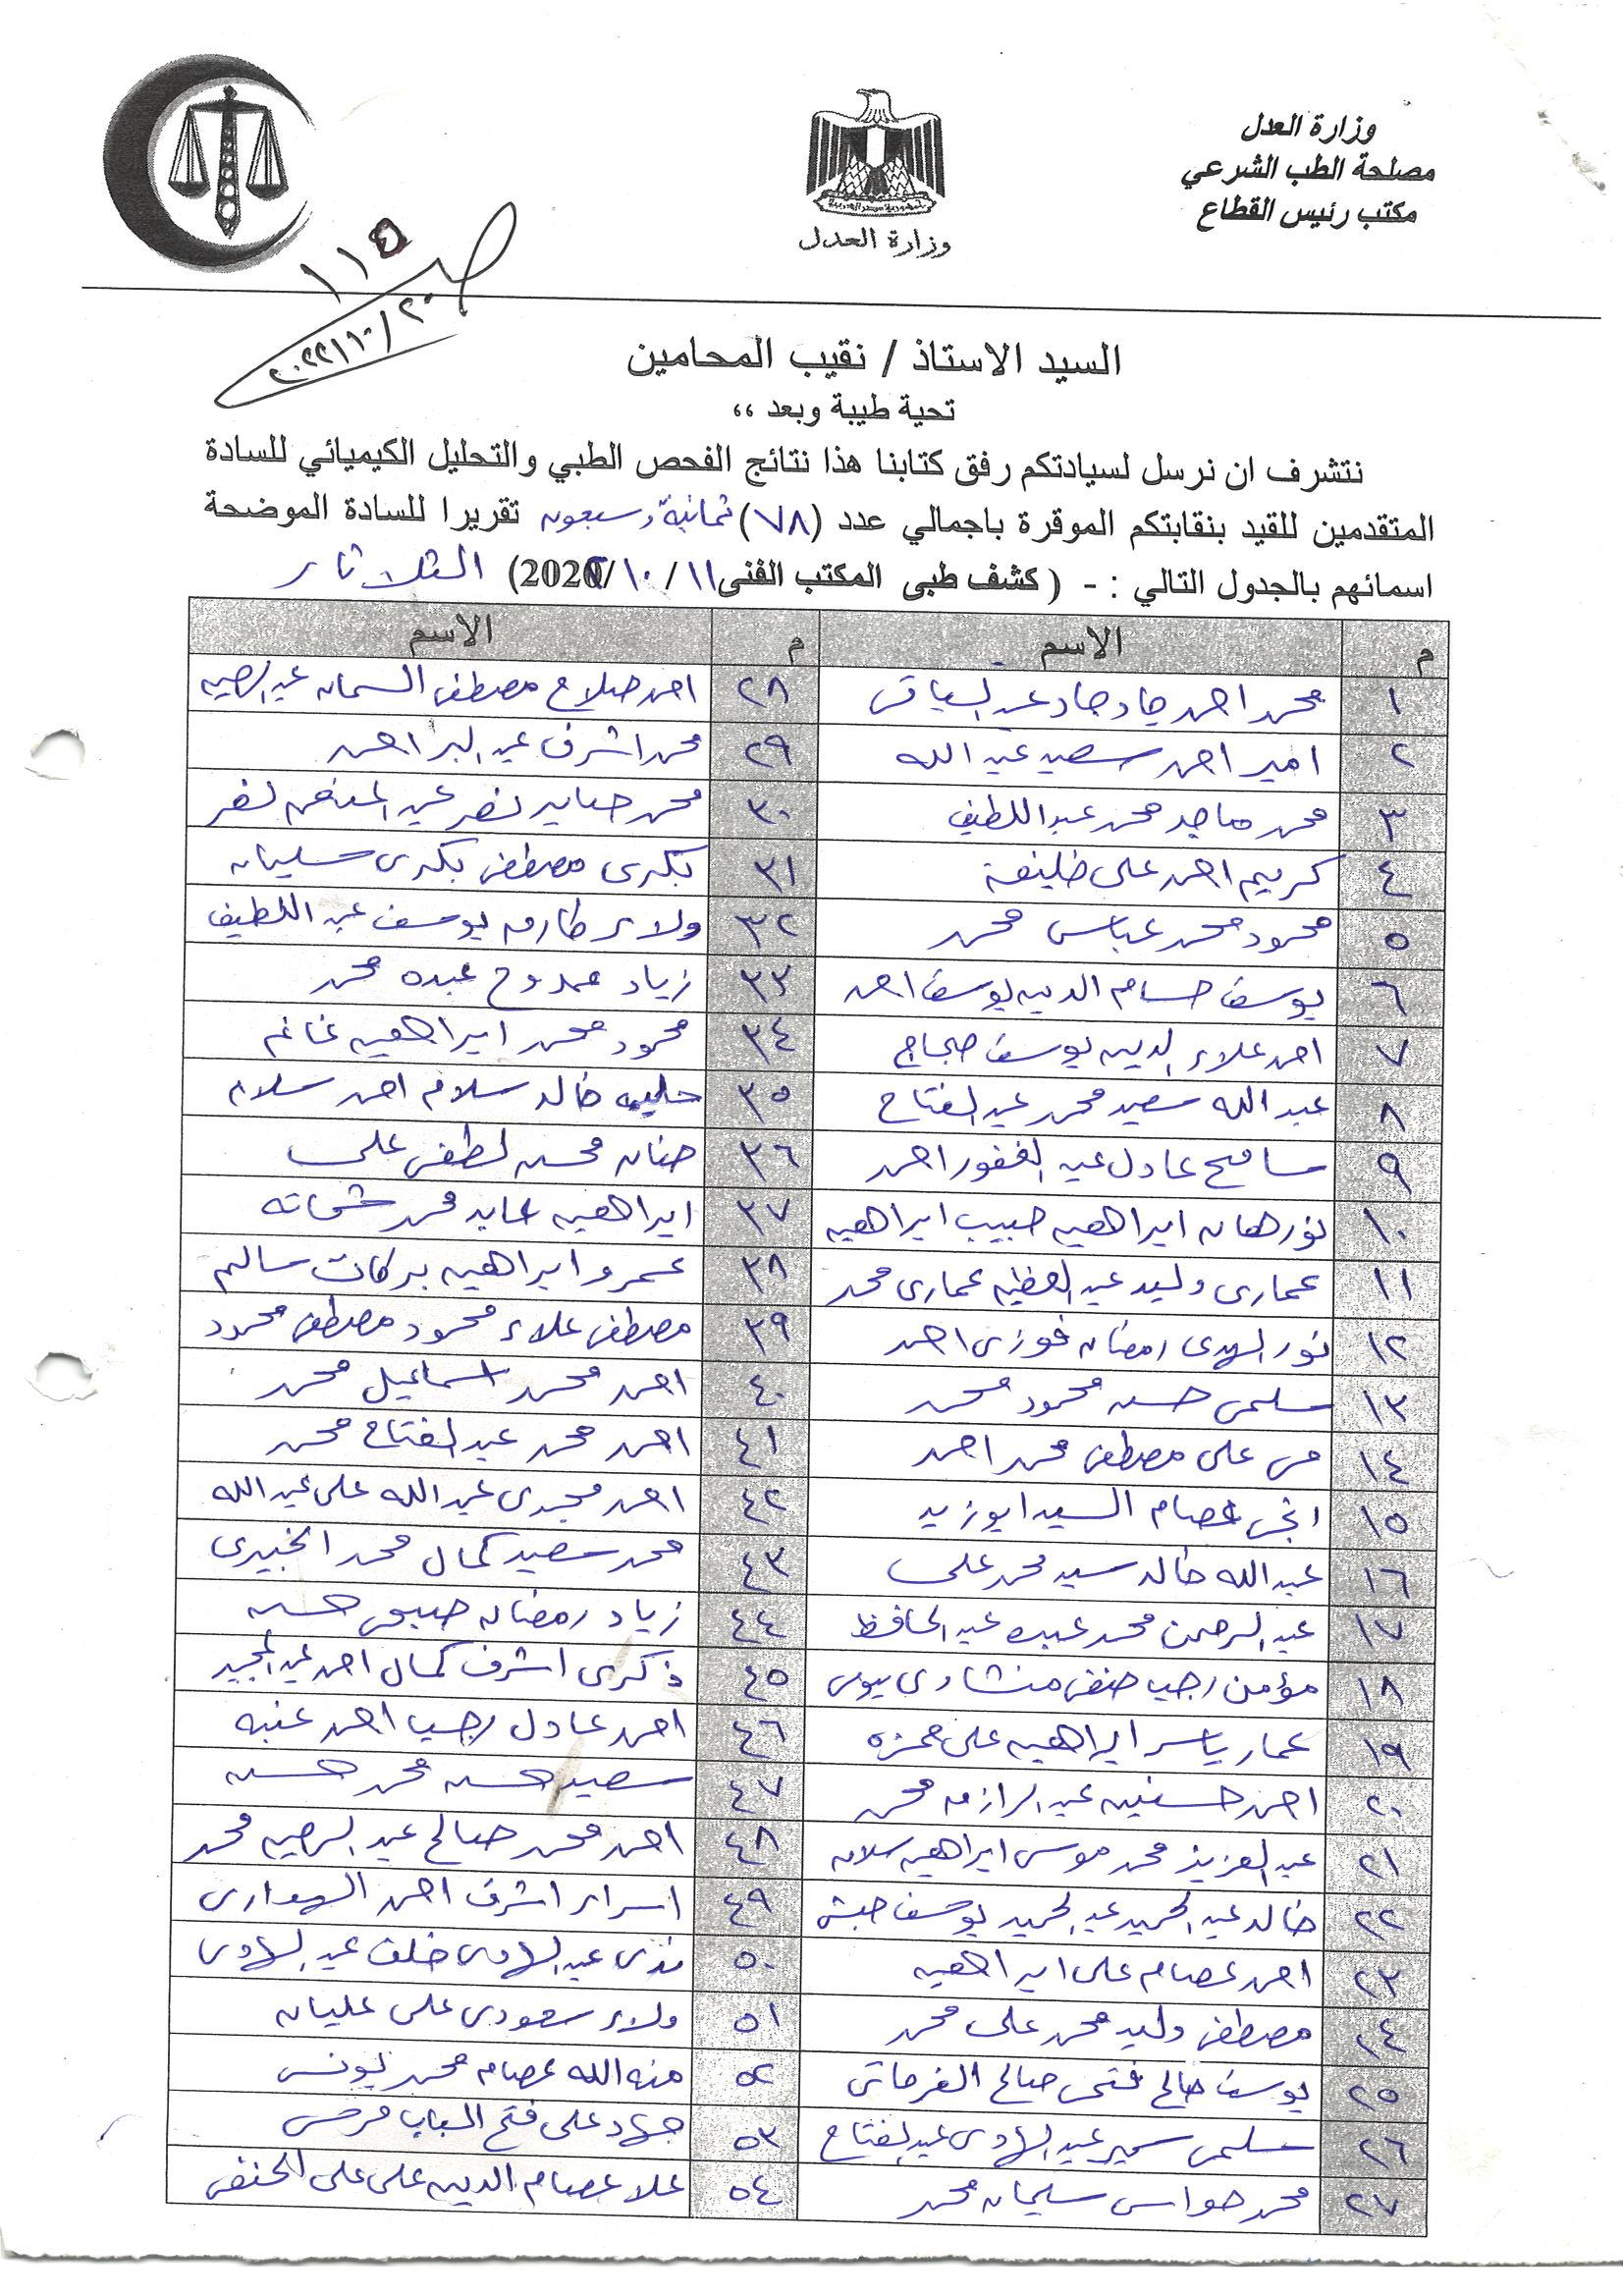 وزارة العدل
مصلحة الطب الشرعي
مكتب رئيس القطاع
وزارة العدل
١١٥
٢٠٢٢/١٠/٢٠
السيد الاستاذ / نقيب المحامين
تحية طيبة وبعد ،،
نتشرف ان نرسل لسيادتكم رفق كتابنا هذا نتائج الفحص الطبي والتحليل الكيميائي للسادة
المتقدمين للقيد بنقابتكم الموقرة باجمالي عدد (٧٨) ثمانية وسبعون تقريرا للسادة الموضحة
اسمائهم بالجدول التالي : - ( كشف طبى المكتب الفنى ١١/ ١٠/ 2022) الثلاثاء
م الاسم م الاسم
١ محمد احمد جاد جاد عبد 
٢٨ احمد صلاح مصطفى السمان عبد الرحيم
٢ امير احمد سعيد عبد الله
٢٩ محمد اشرف عبد البر احمد
٣ محمد ماجد محمد عبد اللطيف
٣٠ محمد صابر نصر عبد المنعم نصر
٤ كريم احمد على خليفة
٣١ بكرى مصطفى بكرى سليمان
٥ محمود محمد عباس محمد
٣٢ ولاء طارق يوسف عبد اللطيف
٦ يوسف حسام الدين يوسف احمد
٣٣ زياد ممدوح عبده محمد
٧ احمد علاء الدين يوسف حجاج
٣٤ محمود محمد ابراهيم غانم
٨ عبد الله سعيد محمد عبد الفتاح
٣٥ خالد سلام احمد سلام
٩ سامح عادل عبد الغفور احمد
٣٦ حنان محسن لطفى على
١٠ نورهان ابراهيم حبيب ابراهيم
٣٧ ابراهيم عابد محمد شحاته
١١ عمارى وليد عبد العظيم عمارى محمد
٣٨ عمرو ابراهيم بركات سالم
١٢ نور الهدى رمضان فوزى احمد
٣٩ مصطفى علاء محمود مصطفى محمود
١٣ سلمى حسن محمود محمد
٤٠ احمد محمد اسماعيل محمد
١٤ مى على مصطفى محمد احمد
٤١ احمد محمد عبد الفتاح محمد
١٥ انجى عصام السيد ابوزيد
٤٢ احمد مجدى عبد الله على عبد الله
١٦ عبد الله خالد سيد محمد على
٤٣ محمد سعيد كمال محمد الجبيرى
١٧ عبد الرحمن محمد عبده عبد الحافظ
٤٤ زياد رمضان صبحى حسن
١٨ مؤمن رجب حنفى منشاوى
٤٥ ذكرى اشرف كمال احمد عبد المجيد
١٩ عمار ياسر ابراهيم على حمزه
٤٦ احمد عادل رجب احمد عنبه
٢٠ احمد حسنين عبد الرازق محمد
٤٧ سعيد حسن محمد حسن
٢١ عبد العزيز محمد موسى ابراهيم سلامه
٤٨ احمد محمد صالح عبد الرحيم محمد
٢٢ خالد عبد الحميد عبد الحميد يوسف حبش
٤٩ اسراء اشرف احمد الهوارى
٢٣ احمد عصام على ابراهيم
٥٠ ندى عبد الهادى خلف عبد الهادى
٢٤ مصطفى وليد محمد على محمد
٥١ ولاء سعودى على عليان
٢٥ يوسف صالح فتحى صالح الفرماتى
٥٢ منه الله عصام محمد يونس
٢٦ سلمى سمير عبد الهادى عبد الفتاح
٥٣ جهاد على فتح الباب مرسى
٢٧ محمد حواس سليمان محمد
٥٤ علا عصام الدين على على الحنفى